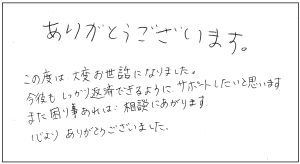 ありがとうございます。
この度は大変お世話になりました。
今後もしっかり返済できるようにサポートしたいと思います
また困り事あれば相談にあがります。
心よりありがとうございました。